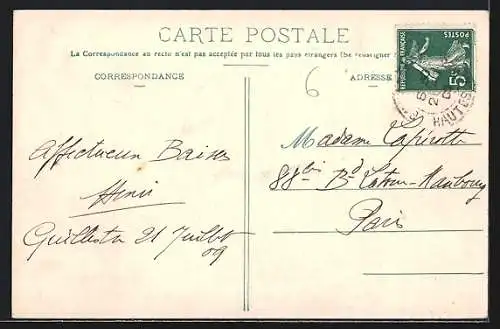 CARTE POSTALE
La Correspondance au recto n'est pas acceptée par tous les pays étrangers (Se renseigner
CORRESPONDANCE
ADRESSE
6
REPUBLIQUE FRANÇAISE
POSTES
5c
HAUTES
Affectueux Baisers
Henri
Guillestre 21 Juillet
09
Madame
88 bis Bd Latour-Maubourg
Paris